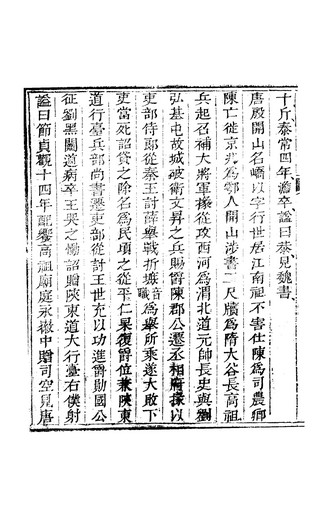 十斤泰常四年澹卒謚曰恭見魏書
唐殷開山名嶠以字行世居江南祖不害仕陳為司農卿
陳亡徙京兆為鄠人開山涉書一尺牘為隋大谷長高祖
兵起召補大將軍掾從攻西河為渭北道元帥長史與劉
弘基屯故城破衛文昇之兵賜爵陳郡公遷丞相府掾以
吏部侍郎從秦王討薛舉戰折墌音職為舉所乘遂大敗下
吏當死詔貸之除名為民頃之從平仁杲復爵位兼陝東
道行臺兵部尚書遷吏部從討王世充以功進爵勛國公
征劉黑闥道病卒王哭之慟詔贈陝東道大行臺右僕射
謚曰節貞觀十四年配饗高祖廟庭永徽中贈司空見唐